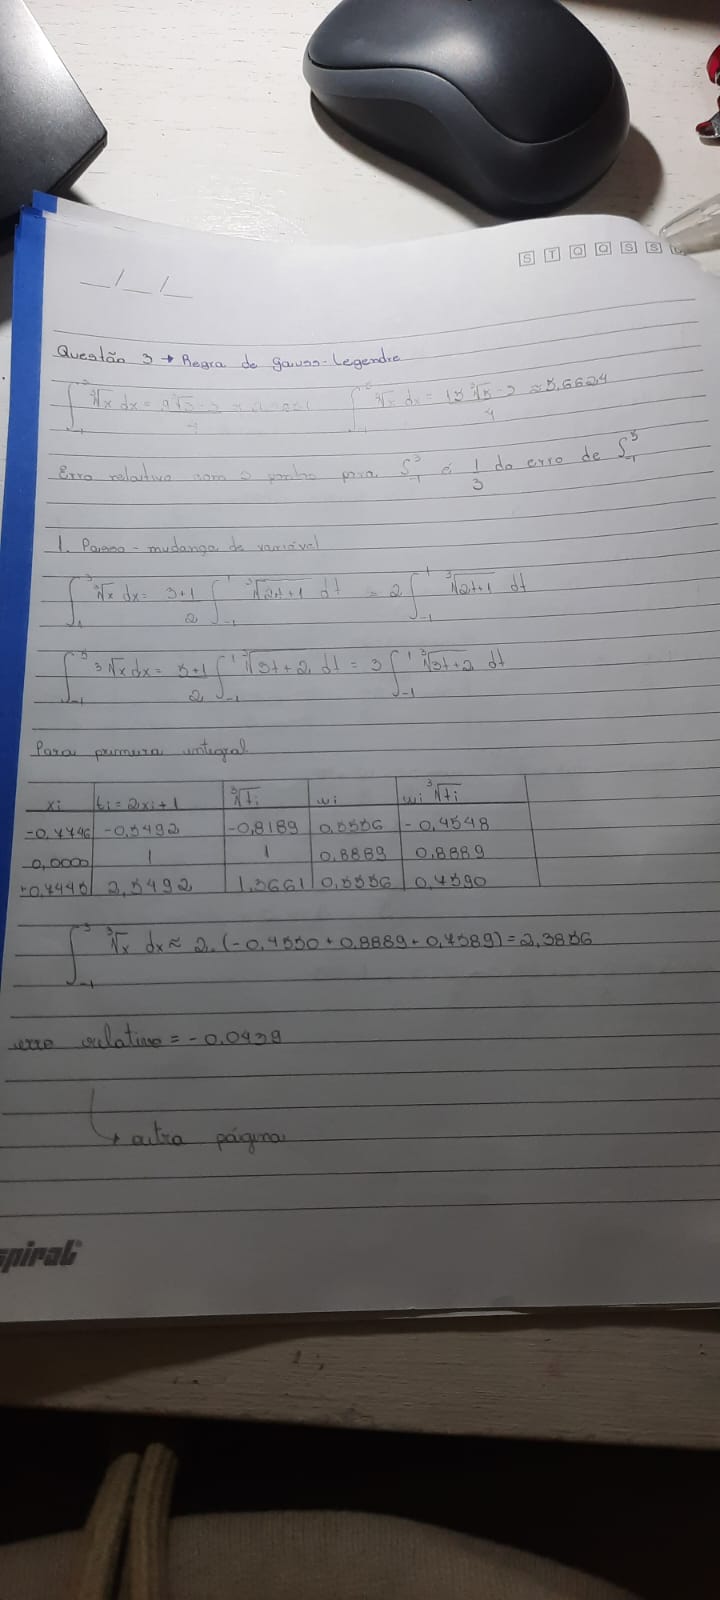 S T Q Q S S D
__/__/__
Questão 3 → Regra de Gauss-Legendre
∫₋₁³ ∛x dx = 9∛3-3 / 4 ∫₋₁⁵ ∛x dx = 15∛5-2 / 4 ≈ 5,6624
Erro relativo com 2 pontos para ∫₋₁³ é 1/3 do erro de ∫₋₁⁵
1. Passo - mudança de variável
∫₋₁³ ∛x dx = 3+1 / 2 ∫₋₁¹ ∛2t+1 dt = 2 ∫₋₁¹ ∛2t+1 dt
∫₋₁⁵ ∛x dx = 5+1 / 2 ∫₋₁¹ ∛3t+2 dt = 3 ∫₋₁¹ ∛3t+2 dt
Para primeira integral
xi ti = 2xi + 1 ∛ti wi wi ∛ti
-0,7746 -0,5492 -0,8189 0,5556 -0,4548
0,0000 1 1 0,8889 0,8889
2,5492 1,3661 0,5556 0,7590
∫₋₁³ ∛x dx ≈ 2.(-0,4550 + 0,8889 + 0,7589) = 2,3856
erro relativo = -0.0439
↳ outra página
spiral®